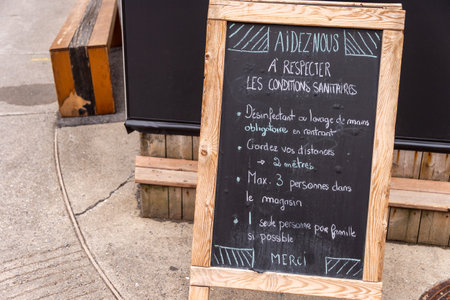 AIDEZ NOUS
A RESPECTER
LES CONDITIONS SANITAIRES
• Désinfectant ou lavage de mains
obligatoire en rentrant
• Gardez vos distances
→ 2 mètres
• Max. 3 personnes dans
le magasin
• 1 seule personne par famille
si possible
MERCI